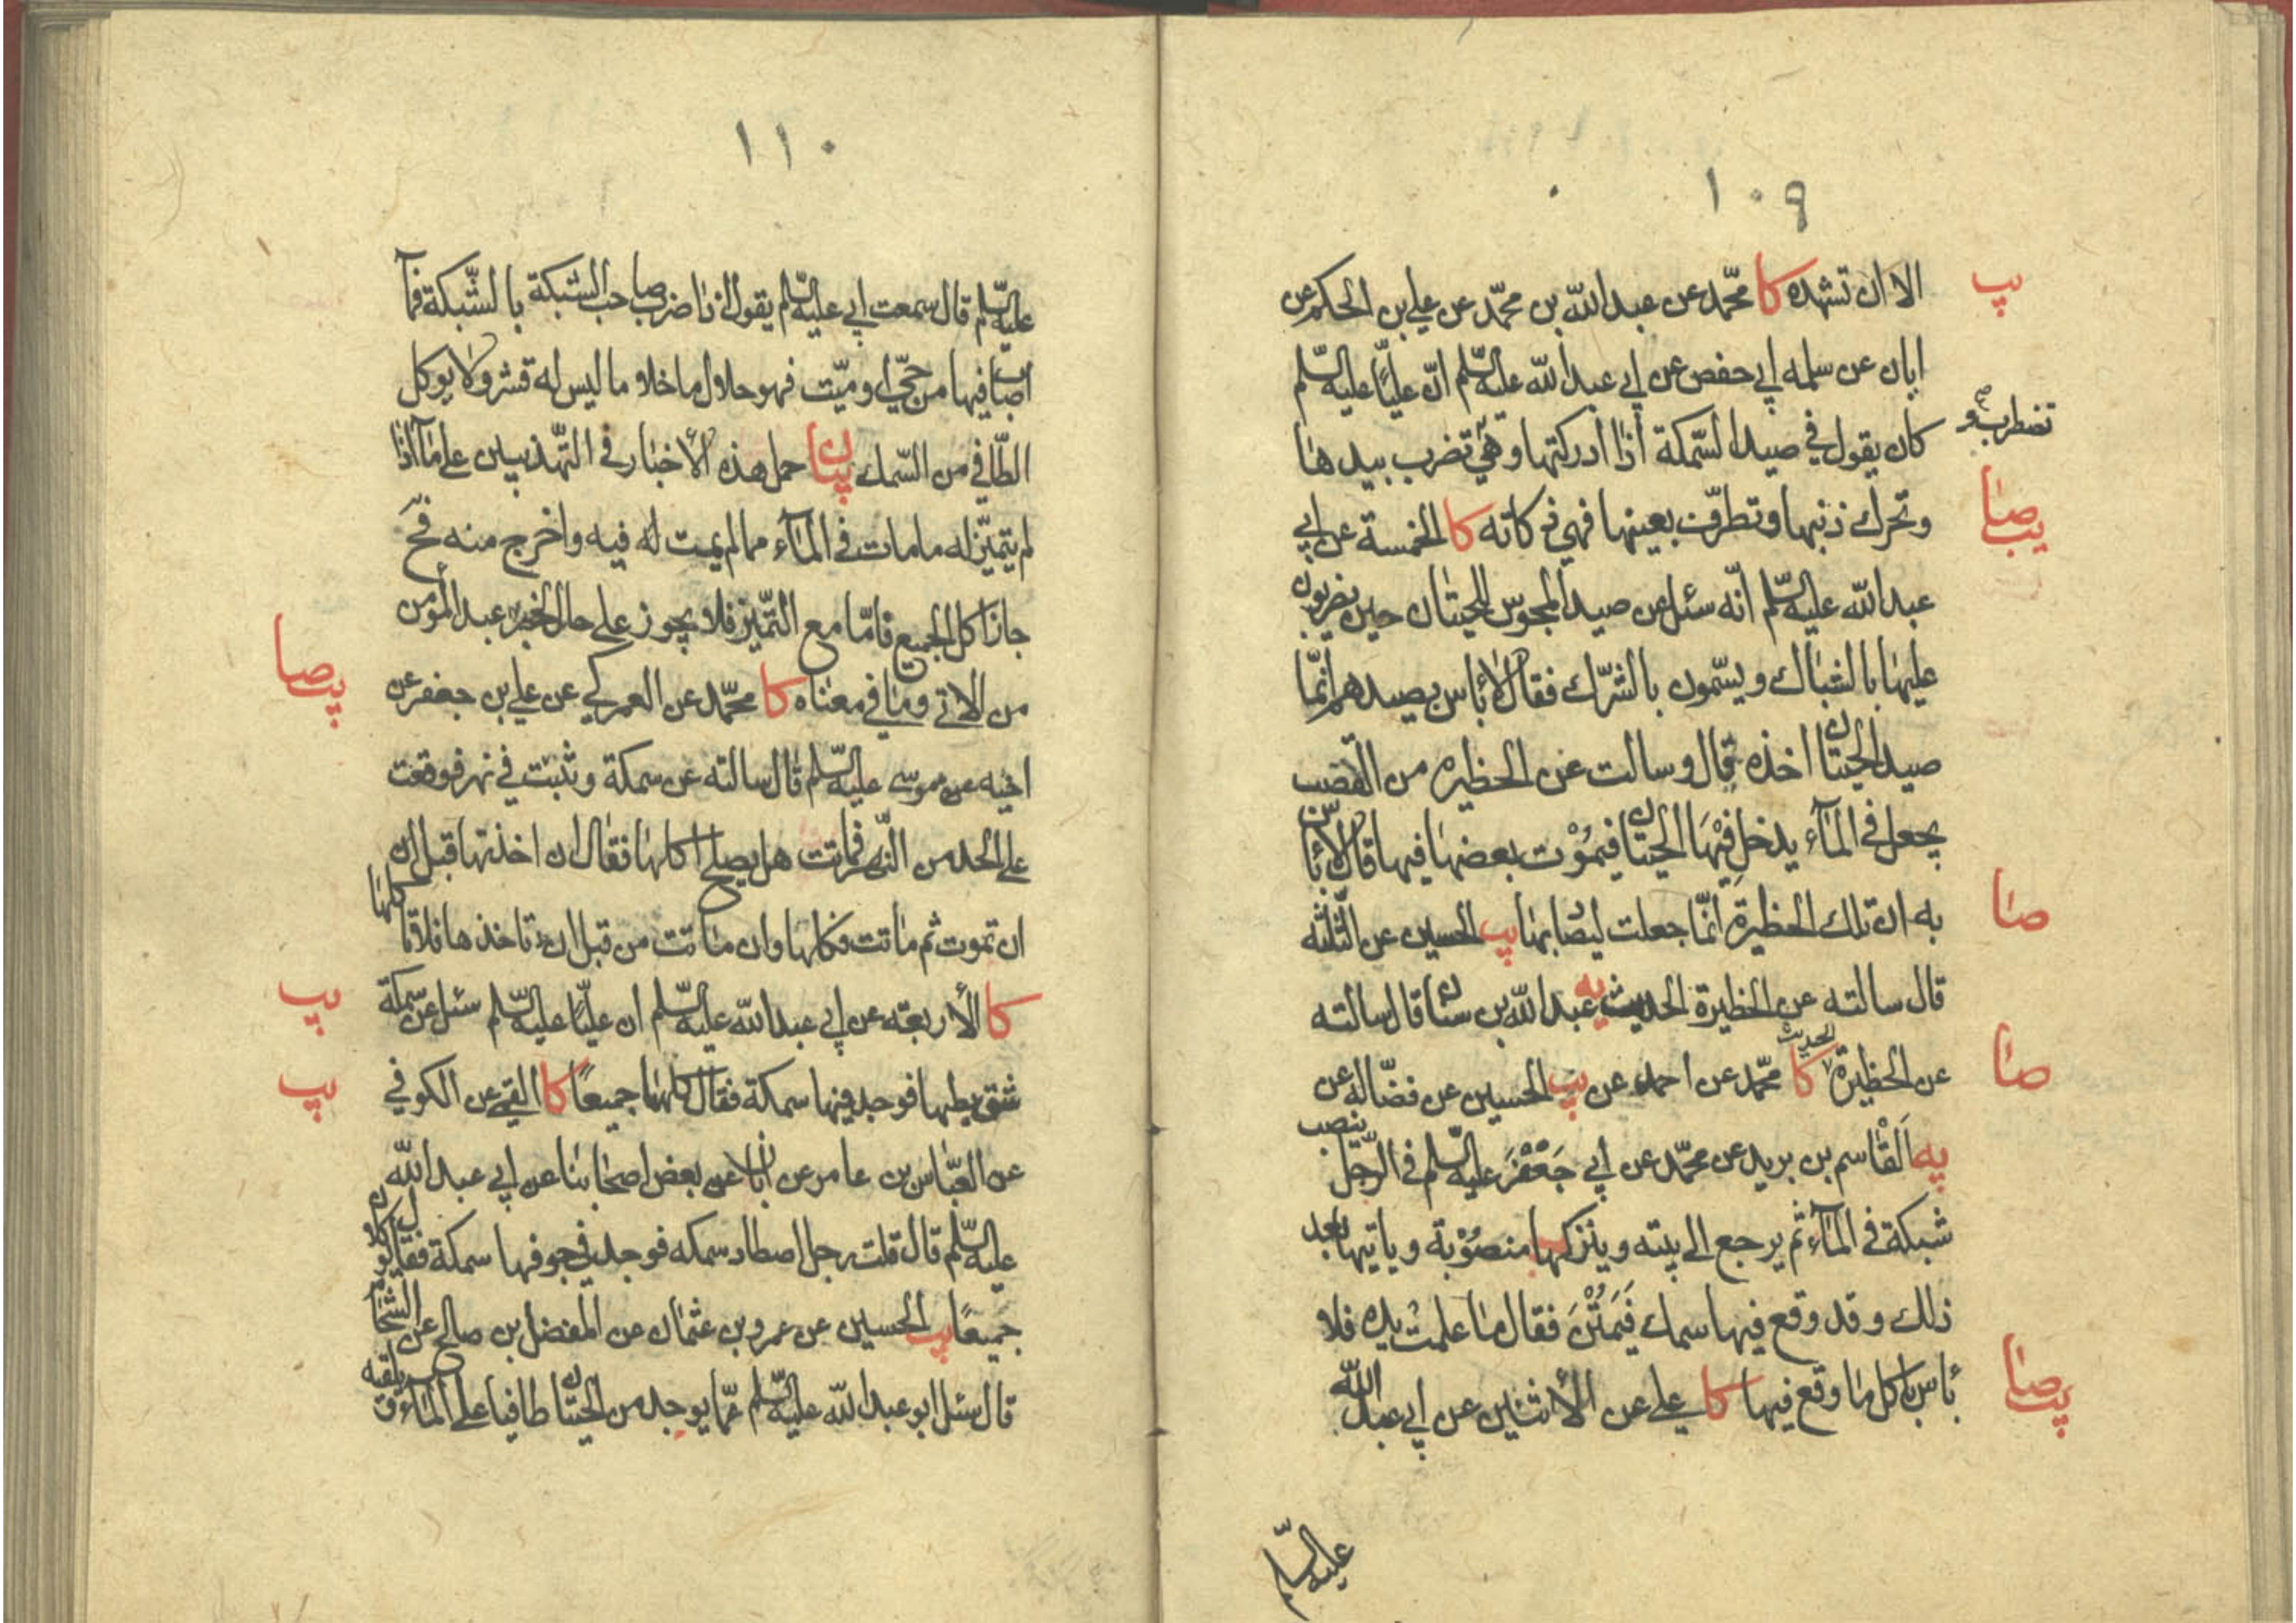 ١٠٩
پ
الا ان تشهده كا محمّد عن عبد الله بن محمّد عن علي بن الحكم عن
ابان عن سلمه ابي حفص عن ابي عبد الله عليه السّلم انّ عليّا عليه السّلم
تضطرب و
كان يقول في صيد السّمكة اذا ادركتها وهي تضرب بيدها
صا يب
وتحرك ذنبها وتطرف بعينها فهي ذكاته كا الخمسة عن ابي
عبد الله عليه السّلم انّه سئل عن صيد المجوس للحيتان حين يضربون
عليها بالشباك ويسّمون بالشرّك فقال لا باس بصيدهم انّما
صيد الحيتان اخذه قال وسالت عن الحظيره من القصب
يجعل في المآء يدخل فيْهَا الحيتان فيموْت بعضها فيها قال لا باس
صا
به ان تلك الحظيرة انّما جعلت ليصاد بها يب الحسين عن الثّلثه
قال سالته عن الحظيرة الحديث يه عبد الله بن سنان قال سالته
صا
عن الحظيرة الحديث كا محمّد عن احمد عن يب الحسين عن فضّاله عن
يه القْاسم بن بريد عن محمّد عن ابي جَعْفَر عليه السّلم في الرّجل ينصب
شبكة في المآء ثم يرجع الى بيته ويتركها منصوْبة وياتيها بعد
ذلك وقد وقع فيها سمك فَيَمُتْنَ فقال ما علمت يده فلا
صا يب
باس باكل ما وقع فيها كا علي عن الأثنين عن ابي عبد الله
عليه السّلم
١١٠
عليه السّلم قال سمعت ابي عليه السّلم يقول اذا ضرب صاحب الشبكة بالشّبكة فمآ
اصاب فيها من حيّ او ميّت فهو حلال ما خلا ما ليس له قشر ولا يوكل
الطّافي من السّمك بيان حمل هذه الأخبار في التّهذيبين على ما اذا
لم يتميّز له ما مات في المآء مما لم يمت له فيه واخرج منه فحَ
جاز اكل الجميع فامّا مع التّميّز فلا يجوز على حال لخبر عبد المؤمن
صا يب
من الاتي وما في معناه كا محمّد عن العمركي عن علي بن جعفر عن
اخيه عن موسى عليه السّلم قال سالته عن سمكة وثبت في نهر فوقعت
على الحد من النّهر فماتت هل يصلح اكلها فقال ان اخذتها قبل ان
ان تموت ثم ماتت فكلها وان ماتت من قبل ان تاخذها فلا تاكلها
يب
كا الأربعته عن ابي عبد الله عليه السّلم ان عليّا عليه السّلم سئل عن سمكة
يب
شق بطنها فوجد فيها سمكة فقال كلهما جميعًا كا القمي عن الكوفي
عن العبّاس بن عامر عن ابان عن بعض اصحابنا عن ابي عبد الله
عليه السّلم قال قلت رجل اصطاد سمكه فوجد في جوفها سمكة فقال يوكلان
جميعًا يب الحسين عن عمرو بن عثمان عن المفضل بن صالح عن الشحّام
قال سئل ابو عبد الله عليه السّلم عمّا يوجد من الحيتان طافيا على المآء و يلقيه